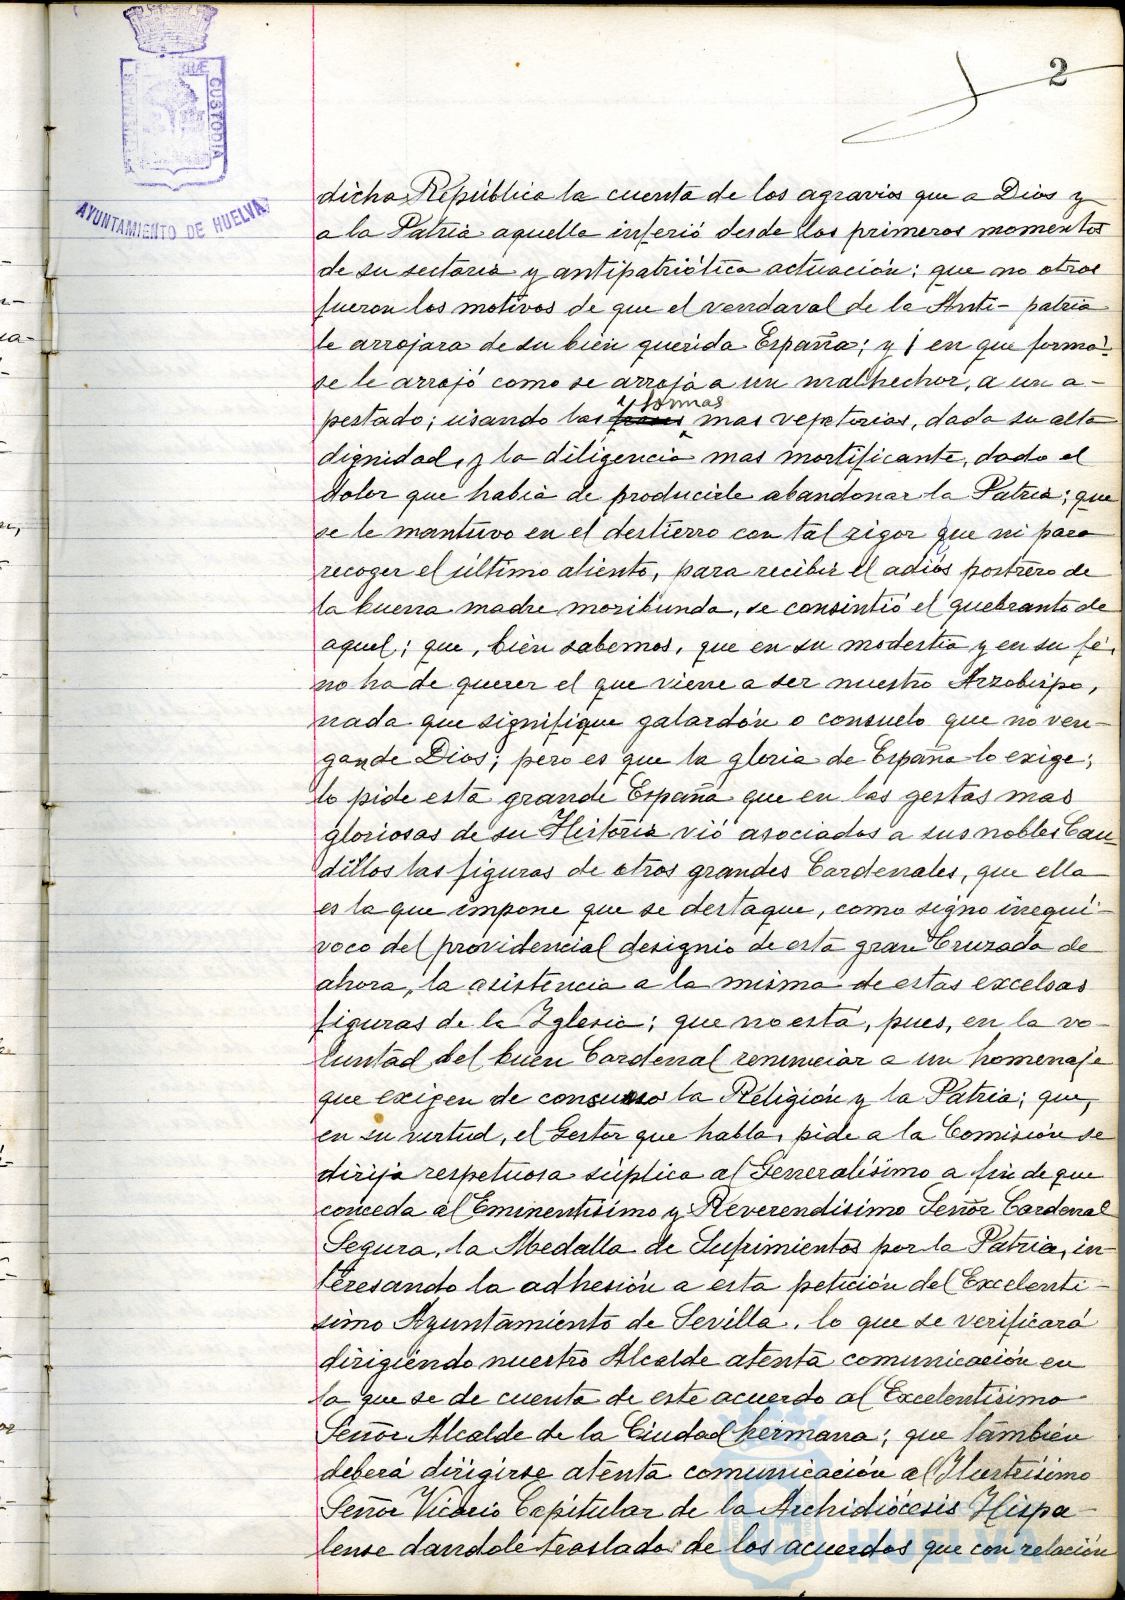 2
CUSTODIA
AYUNTAMIENTO DE HUELVA
dicha República la cuenta de los agravios que a Dios y
a la Patria aquella inferió desde los primeros momentos
de su sectaria y antipatriótica actuación; que no otros
fueron los motivos de que el vendaval de la Anti-patria
le arrojara de su bien querida España; y ¡ en que forma!
se le arrojó como se arroja a un malhechor, a un a-
y formas
pestado; usando las mas vejatorias, dada su alta
dignidad, y la diligencia mas mortificante, dado el
dolor que habia de producirle abandonar la Patria; que
se le mantuvo en el destierro con tal rigor que ni para
recoger el último aliento, para recibir el adiós postrero de
la buena madre moribunda, se consintió el quebranto de
aquel; que, bien sabemos, que en su modestia y en su fé,
no ha de querer el que viene a ser nuestro Arzobispo,
nada que signifique galardón o consuelo que no ven-
gan de Dios; pero es que la gloria de España lo exige;
lo pide esta grande España que en las gestas mas
gloriosas de su Historia vió asociados a sus nobles Cau-
dillos las figuras de otros grandes Cardenales, que ella
es la que impone que se destaque, como signo inequí-
voco del providencial designio de esta gran Cruzada de
ahora, la asistencia a la misma de estas excelsas
figuras de la Iglesia; que no está, pues, en la vo-
luntad del buen Cardenal renunciar a un homenaje
que exigen de consuno la Religión y la Patria; que,
en su virtud, el Gestor que habla, pide a la Comisión se
dirija respetuosa súplica al Generalísimo a fin de que
conceda al Eminentísimo y Reverendísimo Señor Cardenal
Segura, la Medalla de Sufrimientos por la Patria, in-
teresando la adhesión a esta petición del Excelentí-
simo Ayuntamiento de Sevilla, lo que se verificará
dirigiendo nuestro Alcalde atenta comunicación en
la que se de cuenta de este acuerdo al Excelentísimo
Señor Alcalde de la Ciudad hermana; que también
deberá dirigirse atenta comunicación al Ilustrísimo
Señor Vicario Capitular de la Archidiócesis Hispa-
lense dandole traslado de los acuerdos que con relación
HUELVA